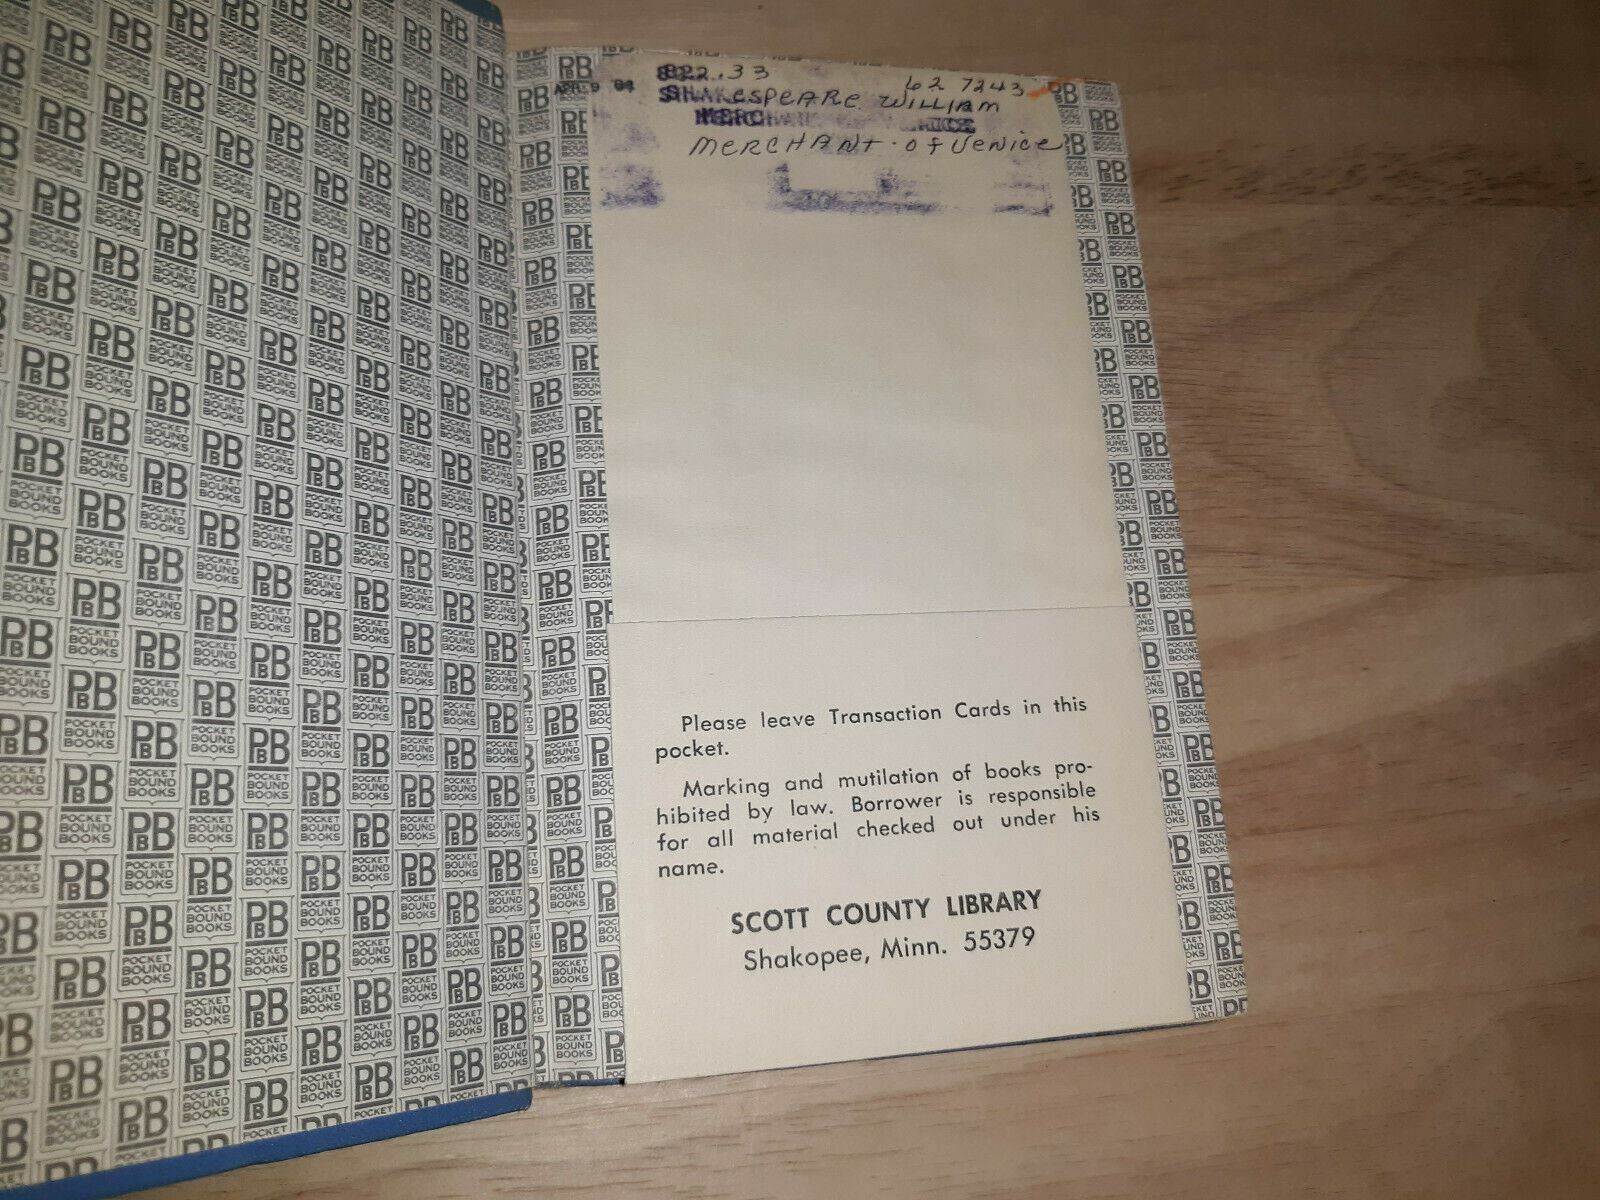 822.33 62 7243
APR 9 84
SHAKESPEARE WILLIAM
MERCHANT OF VENICE
Please leave Transaction Cards in this
pocket.
Marking and mutilation of books pro-
hibited by law. Borrower is responsible
for all material checked out under his
name.
SCOTT COUNTY LIBRARY
Shakopee, Minn. 55379
PBB
POCKET
BOUND
BOOKS